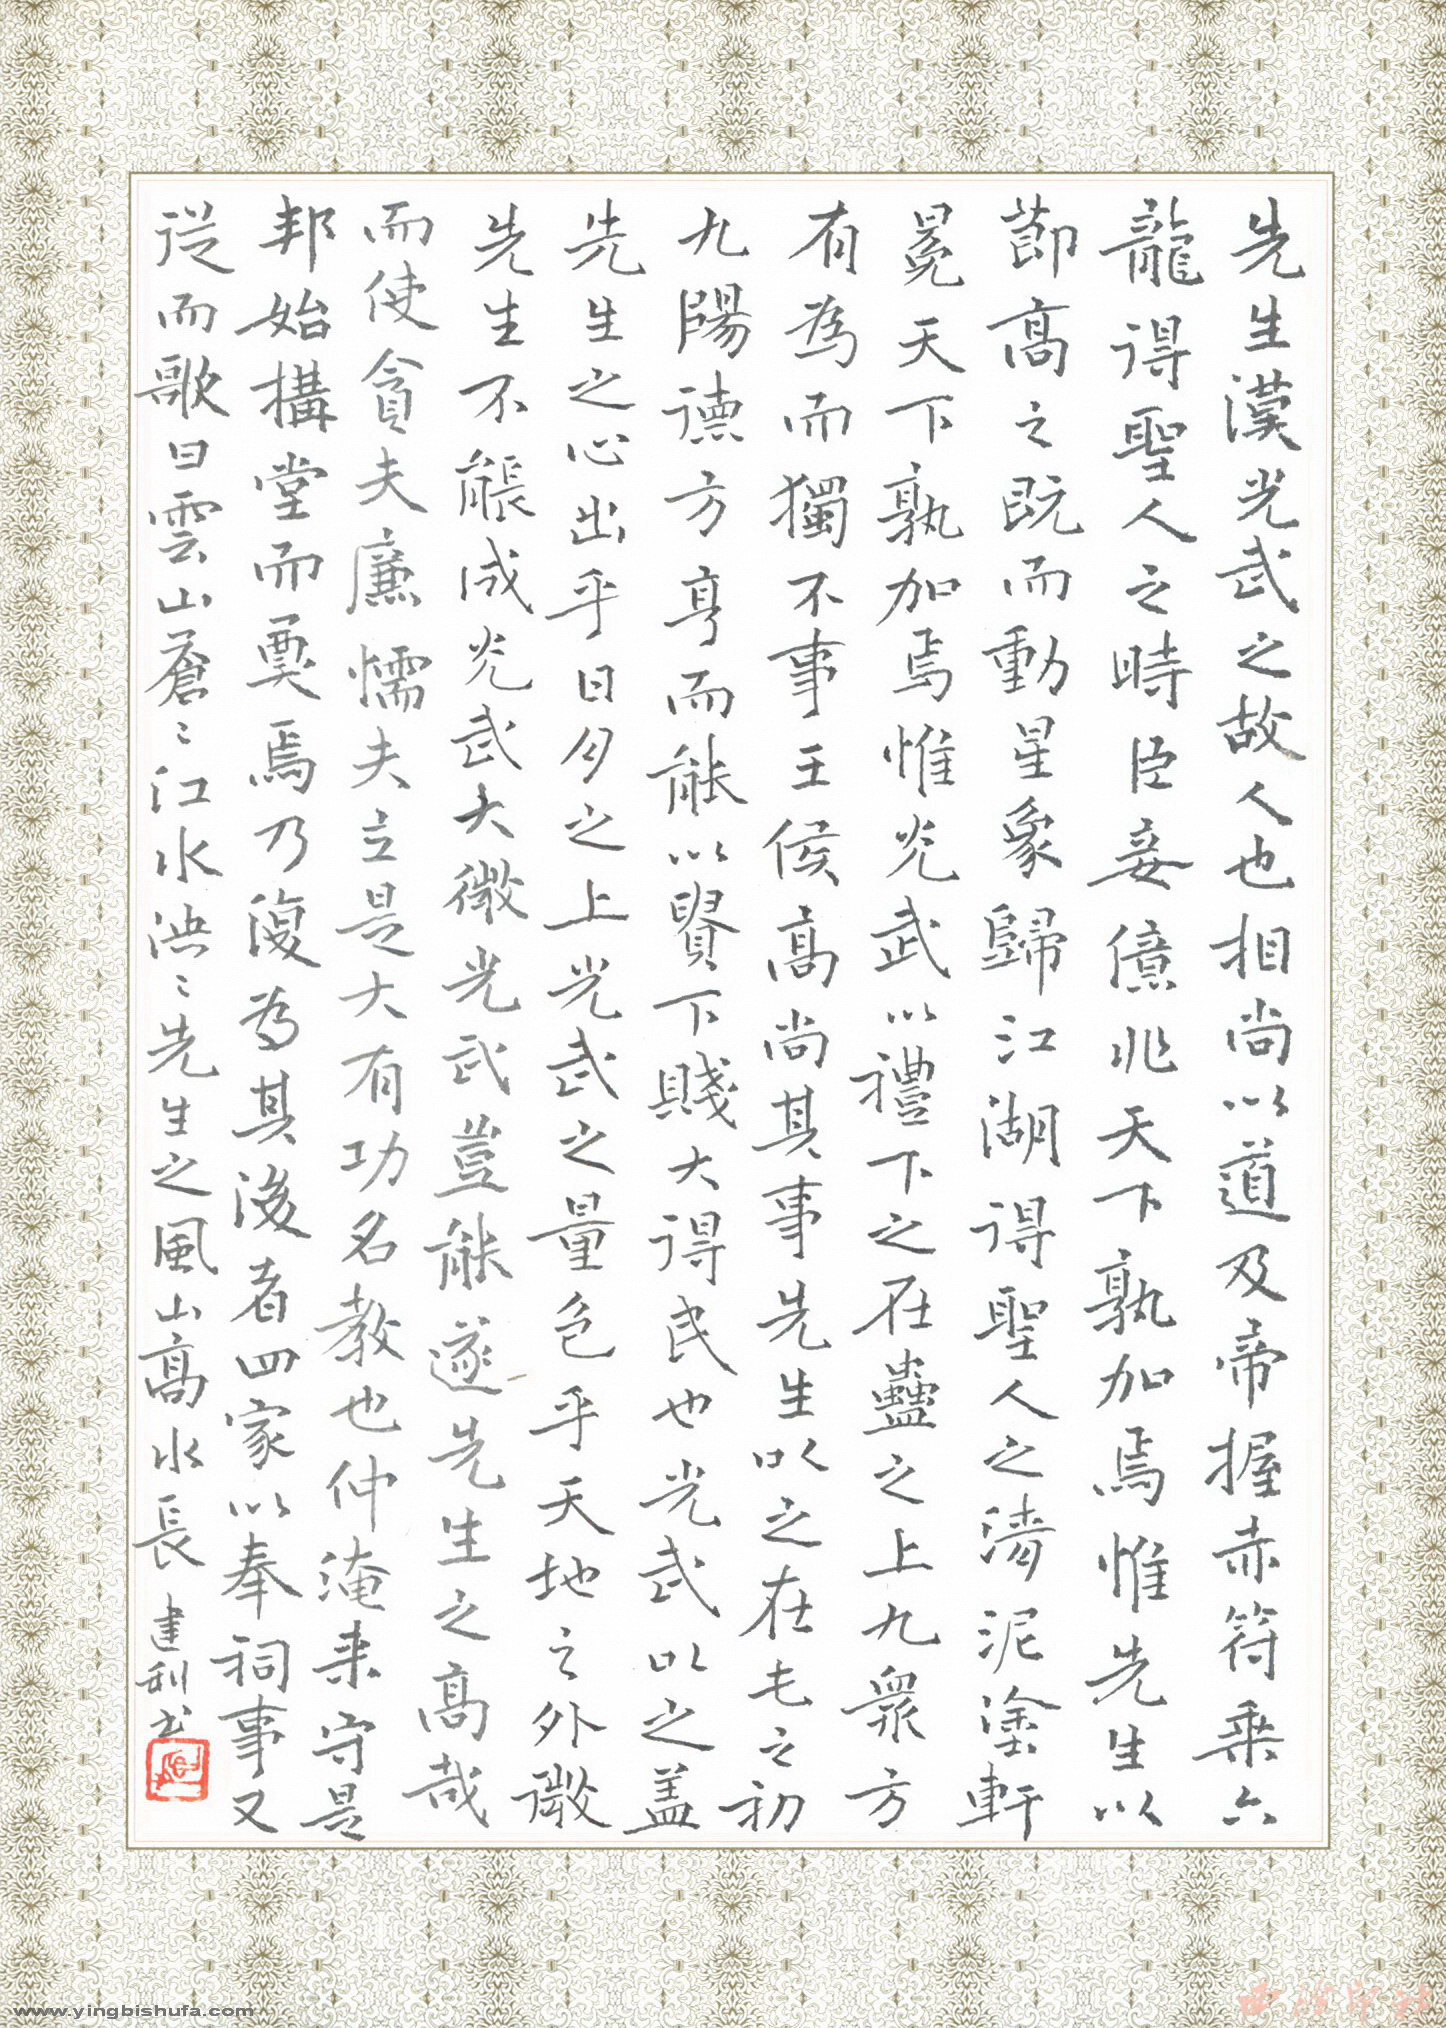 先生漢光武之故人也相尚以道及帝握赤符乘六
龍得聖人之時臣妾億兆天下孰加焉惟先生以
節高之既而動星象歸江湖得聖人之清泥塗軒
冕天下孰加焉惟光武以禮下之在蠱之上九眾方
有為而獨不事王侯高尚其事先生以之在屯之初
九陽德方亨而能以貴下賤大得民也光武以之蓋
先生之心出乎日月之上光武之量包乎天地之外微
先生不能成光武大微光武豈能遂先生之高哉
而使貪夫廉懦夫立是大有功名教也仲淹来守是
邦始構堂而奠焉乃復為其後者四家以奉祠事又
從而歌曰雲山蒼〻江水泱〻先生之風山高水長 建利书
www.yingbishufa.com